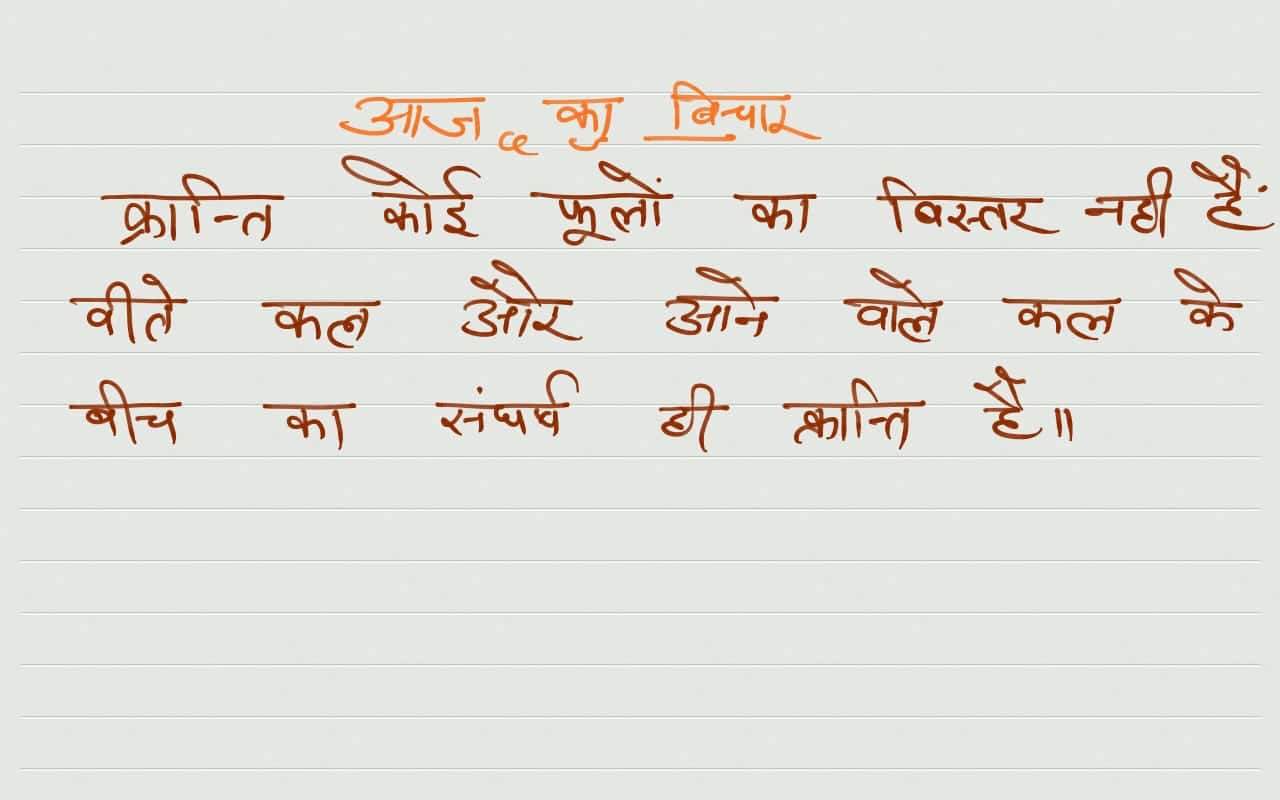 आज का बिचार
क्रान्ति कोई फूलों का बिस्तर नही हैं
बीते कल और आने वाले कल के
बीच का संघर्ष ही क्रान्ति है॥